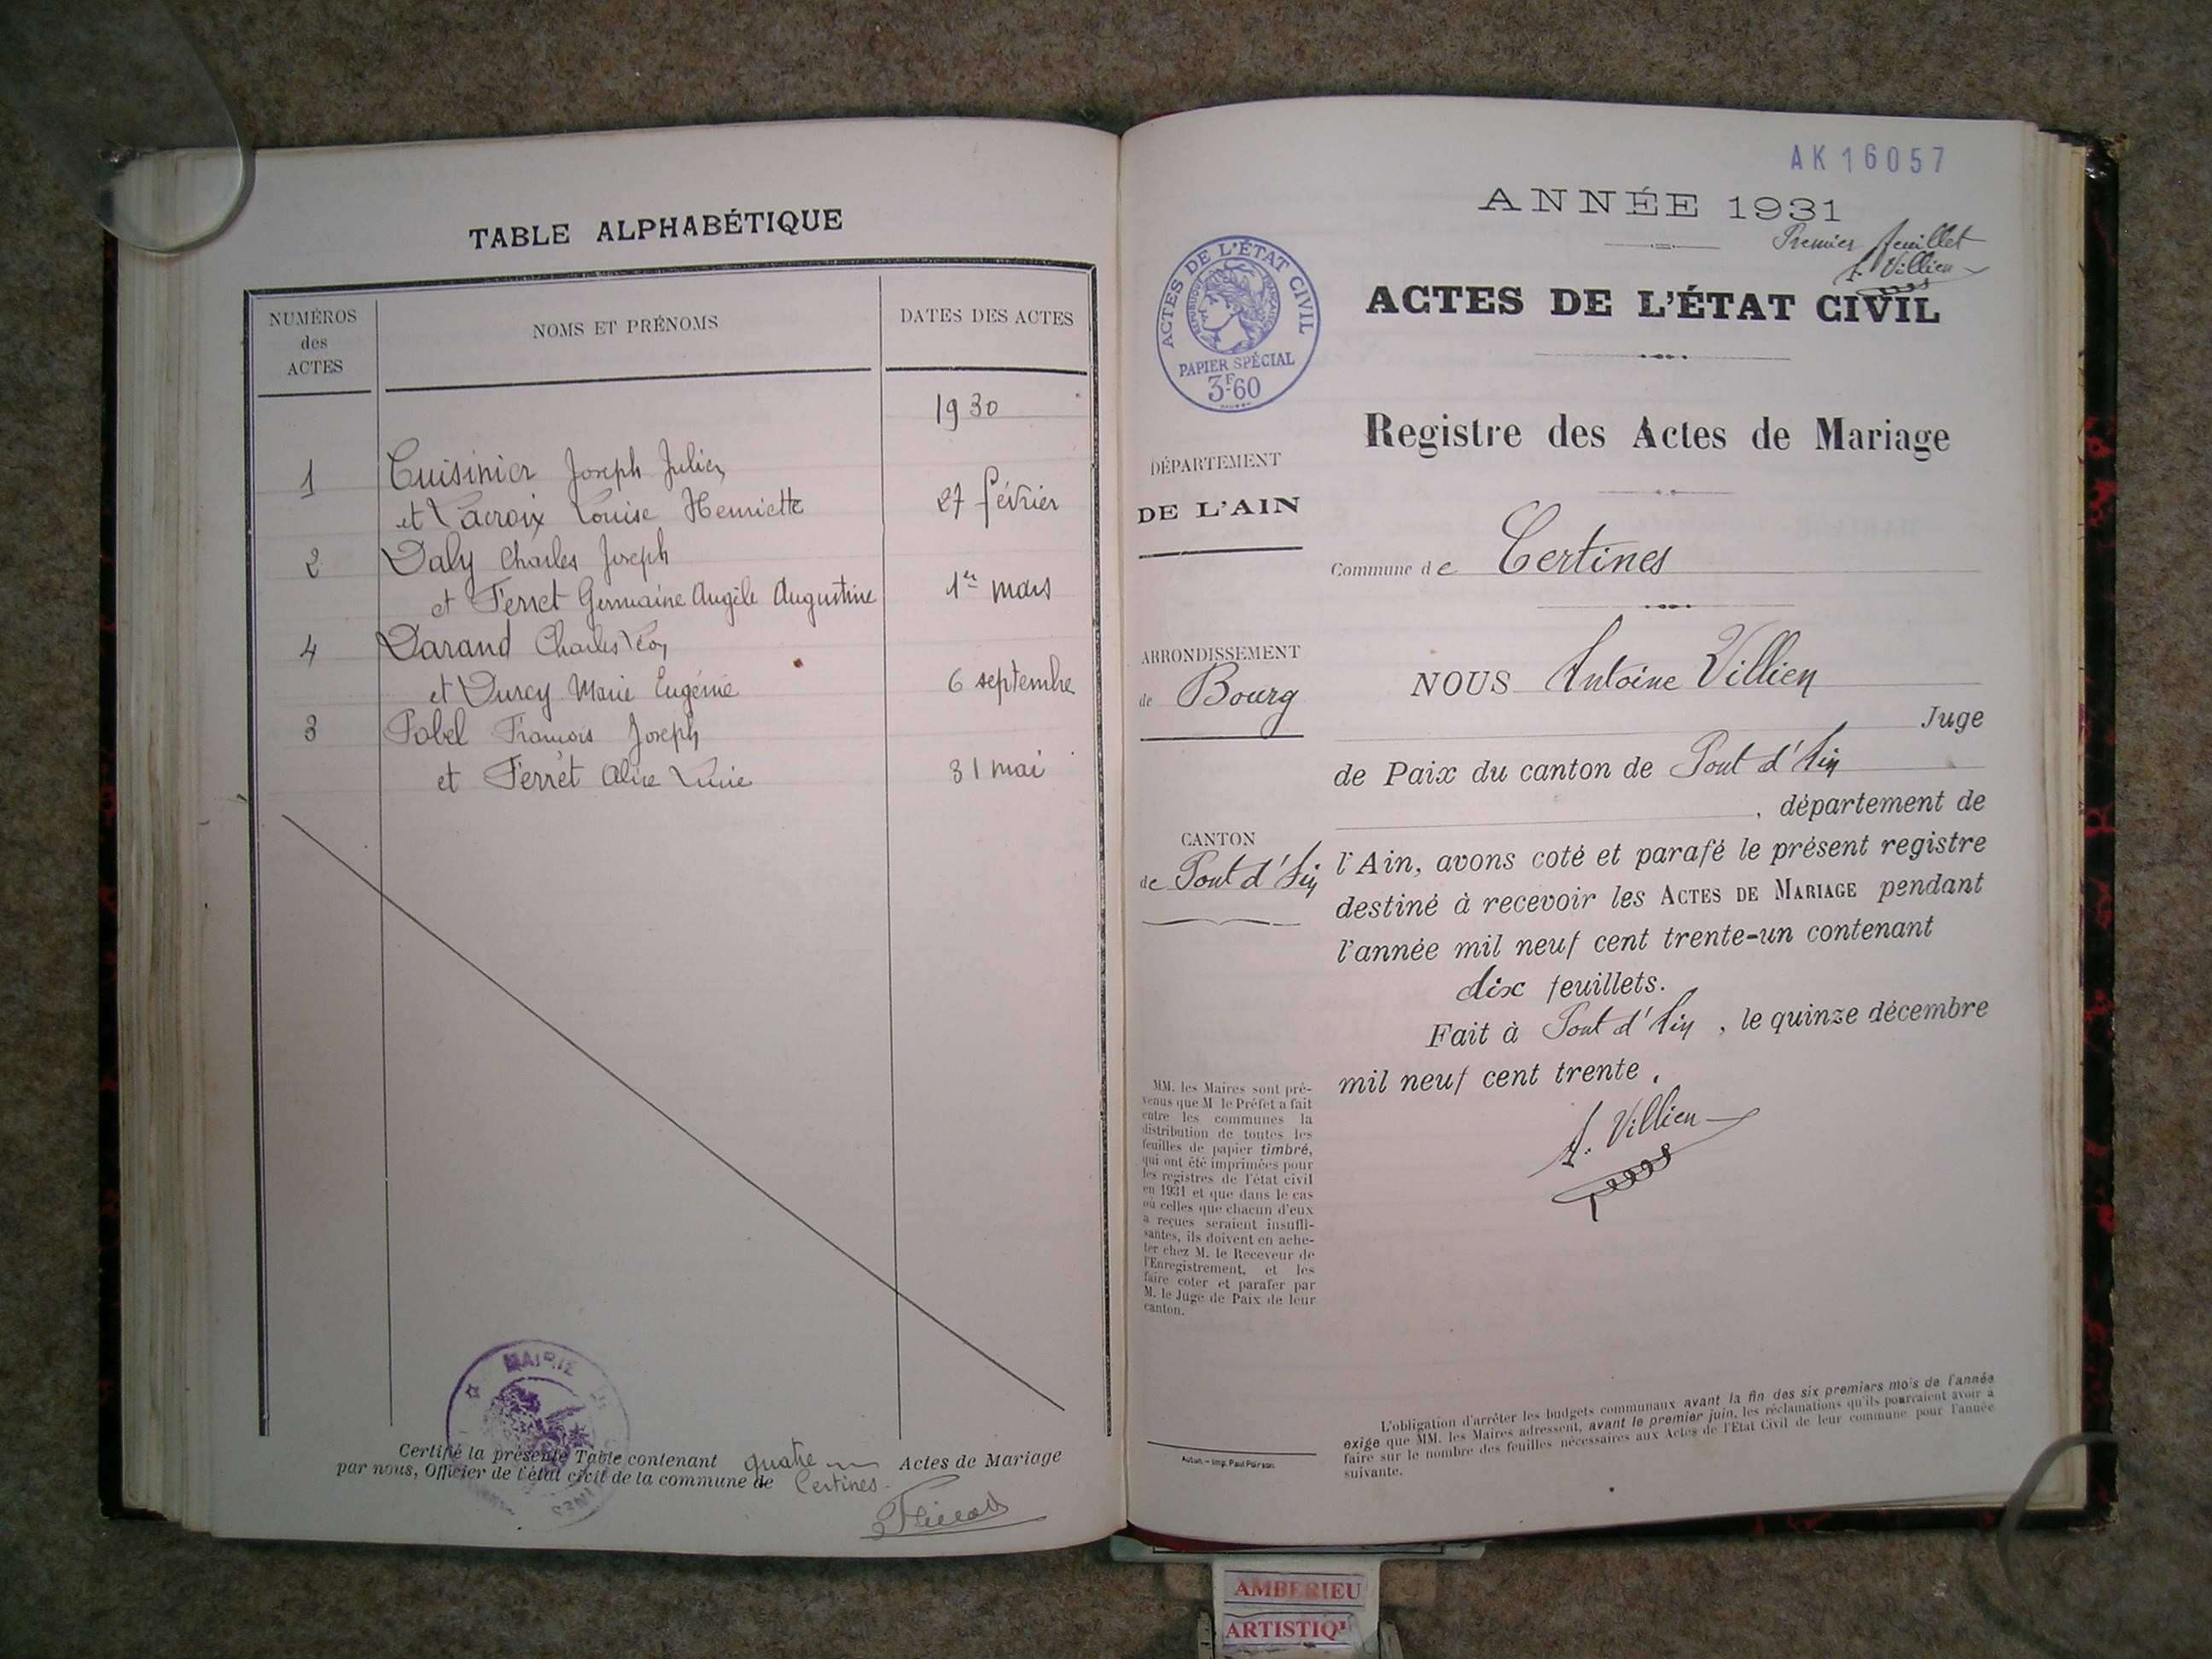 TABLE ALPHABÉTIQUE
NUMÉROS
des
ACTES
NOMS ET PRÉNOMS
DATES DES ACTES
1930
1
Cuisinier Joseph Julien
et Lacroix Louise Henriette
27 février
2
Daly Charles Joseph
et Ferret Germaine Angèle Augustine
1er mars
4
Darand Charles Léon
et Durcy Marie Eugénie
6 septembre
3
Pobel François Joseph
et Ferret Alice Lucie
31 mai
MAIRIE DE
Certifié la présente Table contenant quatre Actes de Mariage
par nous, Officier de l'état civil de la commune de Certines
AK16057
ANNÉE 1931
Premier feuillet
A. Villien
ACTES DE L'ÉTAT CIVIL
RÉPUBLIQUE FRANÇAISE
PAPIER SPÉCIAL
3F60
ACTES DE L'ÉTAT CIVIL
Registre des Actes de Mariage
DÉPARTEMENT
DE L'AIN
Commune de Certines
ARRONDISSEMENT
de Bourg
NOUS Antoine Villien
Juge
de Paix du canton de Pont d'Ain
, département de
CANTON
de Pont d'Ain
l'Ain, avons coté et parafé le présent registre
destiné à recevoir les ACTES DE MARIAGE pendant
l'année mil neuf cent trente-un contenant
dix feuillets.
Fait à Pont d'Ain, le quinze décembre
mil neuf cent trente.
A. Villien
MM. les Maires sont pré-
venus que M le Préfet a fait
entre les communes la
distribution de toutes les
feuilles de papier timbré,
qui ont été imprimées pour
les registres de l'état civil
en 1931 et que dans le cas
où celles que chacun d'eux
a reçues seraient insuffi-
santes, ils doivent en ache-
ter chez M. le Receveur de
l'Enregistrement, et les
faire coter et parafer par
M. le Juge de Paix de leur
canton.
Autun. – Imp. Paul Poirson.
L'obligation d'arrêter les budgets communaux avant la fin des six premiers mois de l'année
exige que MM. les Maires adressent, avant le premier juin, les réclamations qu'ils pourraient avoir à
faire sur le nombre des feuilles nécessaires aux Actes de l'État Civil de leur commune pour l'année
suivante.
AMBERIEU
ARTISTIQ